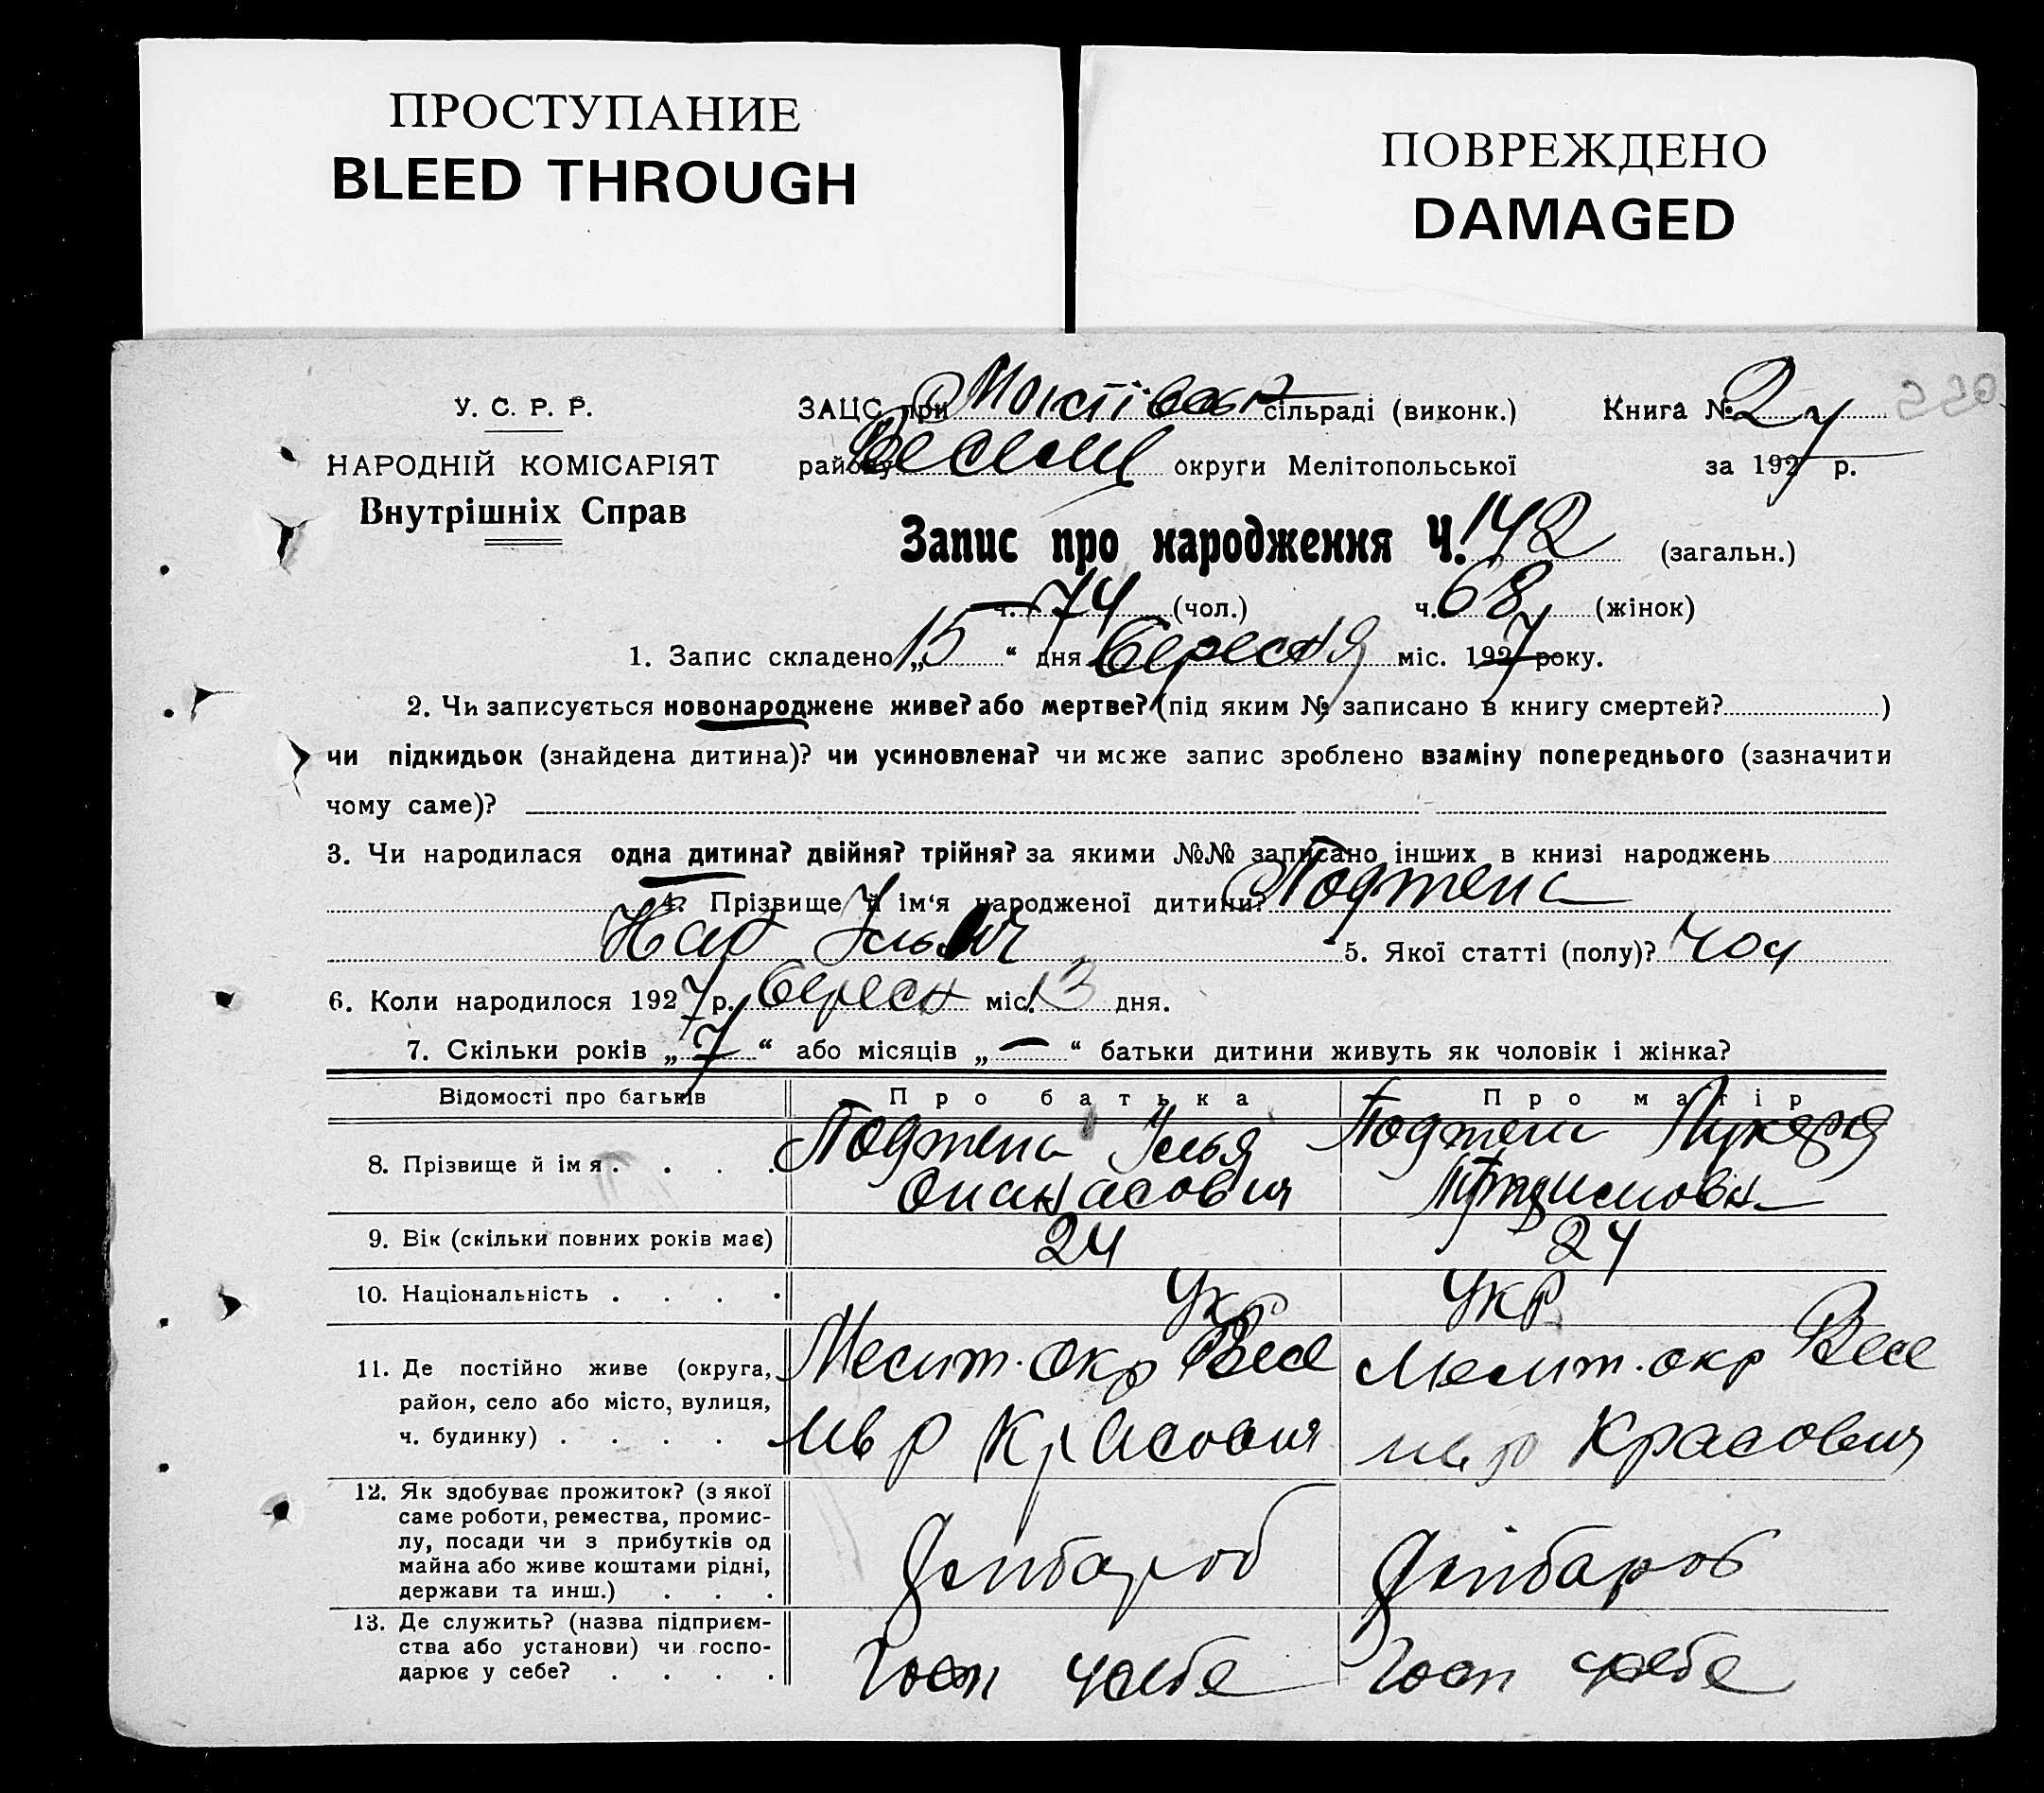 ПРОСТУПАНИЕ
BLEED THROUGH
ПОВРЕЖДЕНО
DAMAGED
У. С. Р. Р.
НАРОДНІЙ КОМІСАРІЯТ
Внутрішніх Справ
ЗАЦС при сільраді (виконк.) Книга № 2
району округи Мелітопольської за 1927 р.
Запис про народження Ч. 142 (загальн.)
ч. 74 (чол.) ч. 68 (жінок)
1. Запис складено „15“ дня Вересня міс. 1927 року.
2. Чи записується новонароджене живе? або мертве? (під яким № записано в книгу смертей? )
чи підкидьок (знайдена дитина)? чи усиновлена? чи може запис зроблено взаміну попереднього (зазначити
чому саме)?
3. Чи народилася одна дитина? двійня? трійня? за якими №№ записано інших в книзі народжень
4. Прізвище й ім'я народженої дитини?
5. Якої статті (полу)? чол
6. Коли народилося 1927 р. Вересн міс. 13 дня.
7. Скільки років „7“ або місяців „—“ батьки дитини живуть як чоловік і жінка?
Відомості про батьків Про батька Про матір
8. Прізвище й ім я . . . . Илья
9. Вік (скільки повних років має) 24 24
10. Національність . . . . Укр Укр
11. Де постійно живе (округа, Мелит. окр Весе Мелит. окр Весе
район, село або місто, вулиця,
ч. будинку) . . . .
12. Як здобуває прожиток? (з якої
саме роботи, ремества, промис-
лу, посади чи з прибутків од
майна або живе коштами рідні,
держави та инш.) . . .
13. Де служить? (назва підприєм-
ства або установи) чи госпо-
дарює у себе? . . . . Госп у себе Госп у себе